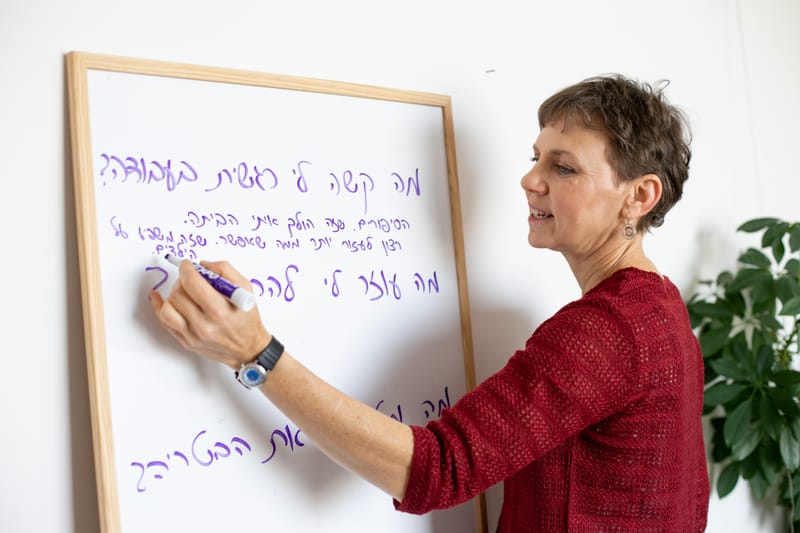 מה קשה לי רגשית בעבודה?
הסיפורים. שזה הולך איתי הביתה.
רצון לעזור יותר ממה שאפשר. שזה משפיע על
הילדים.
מה עוזר לי
מה את הבטריה?